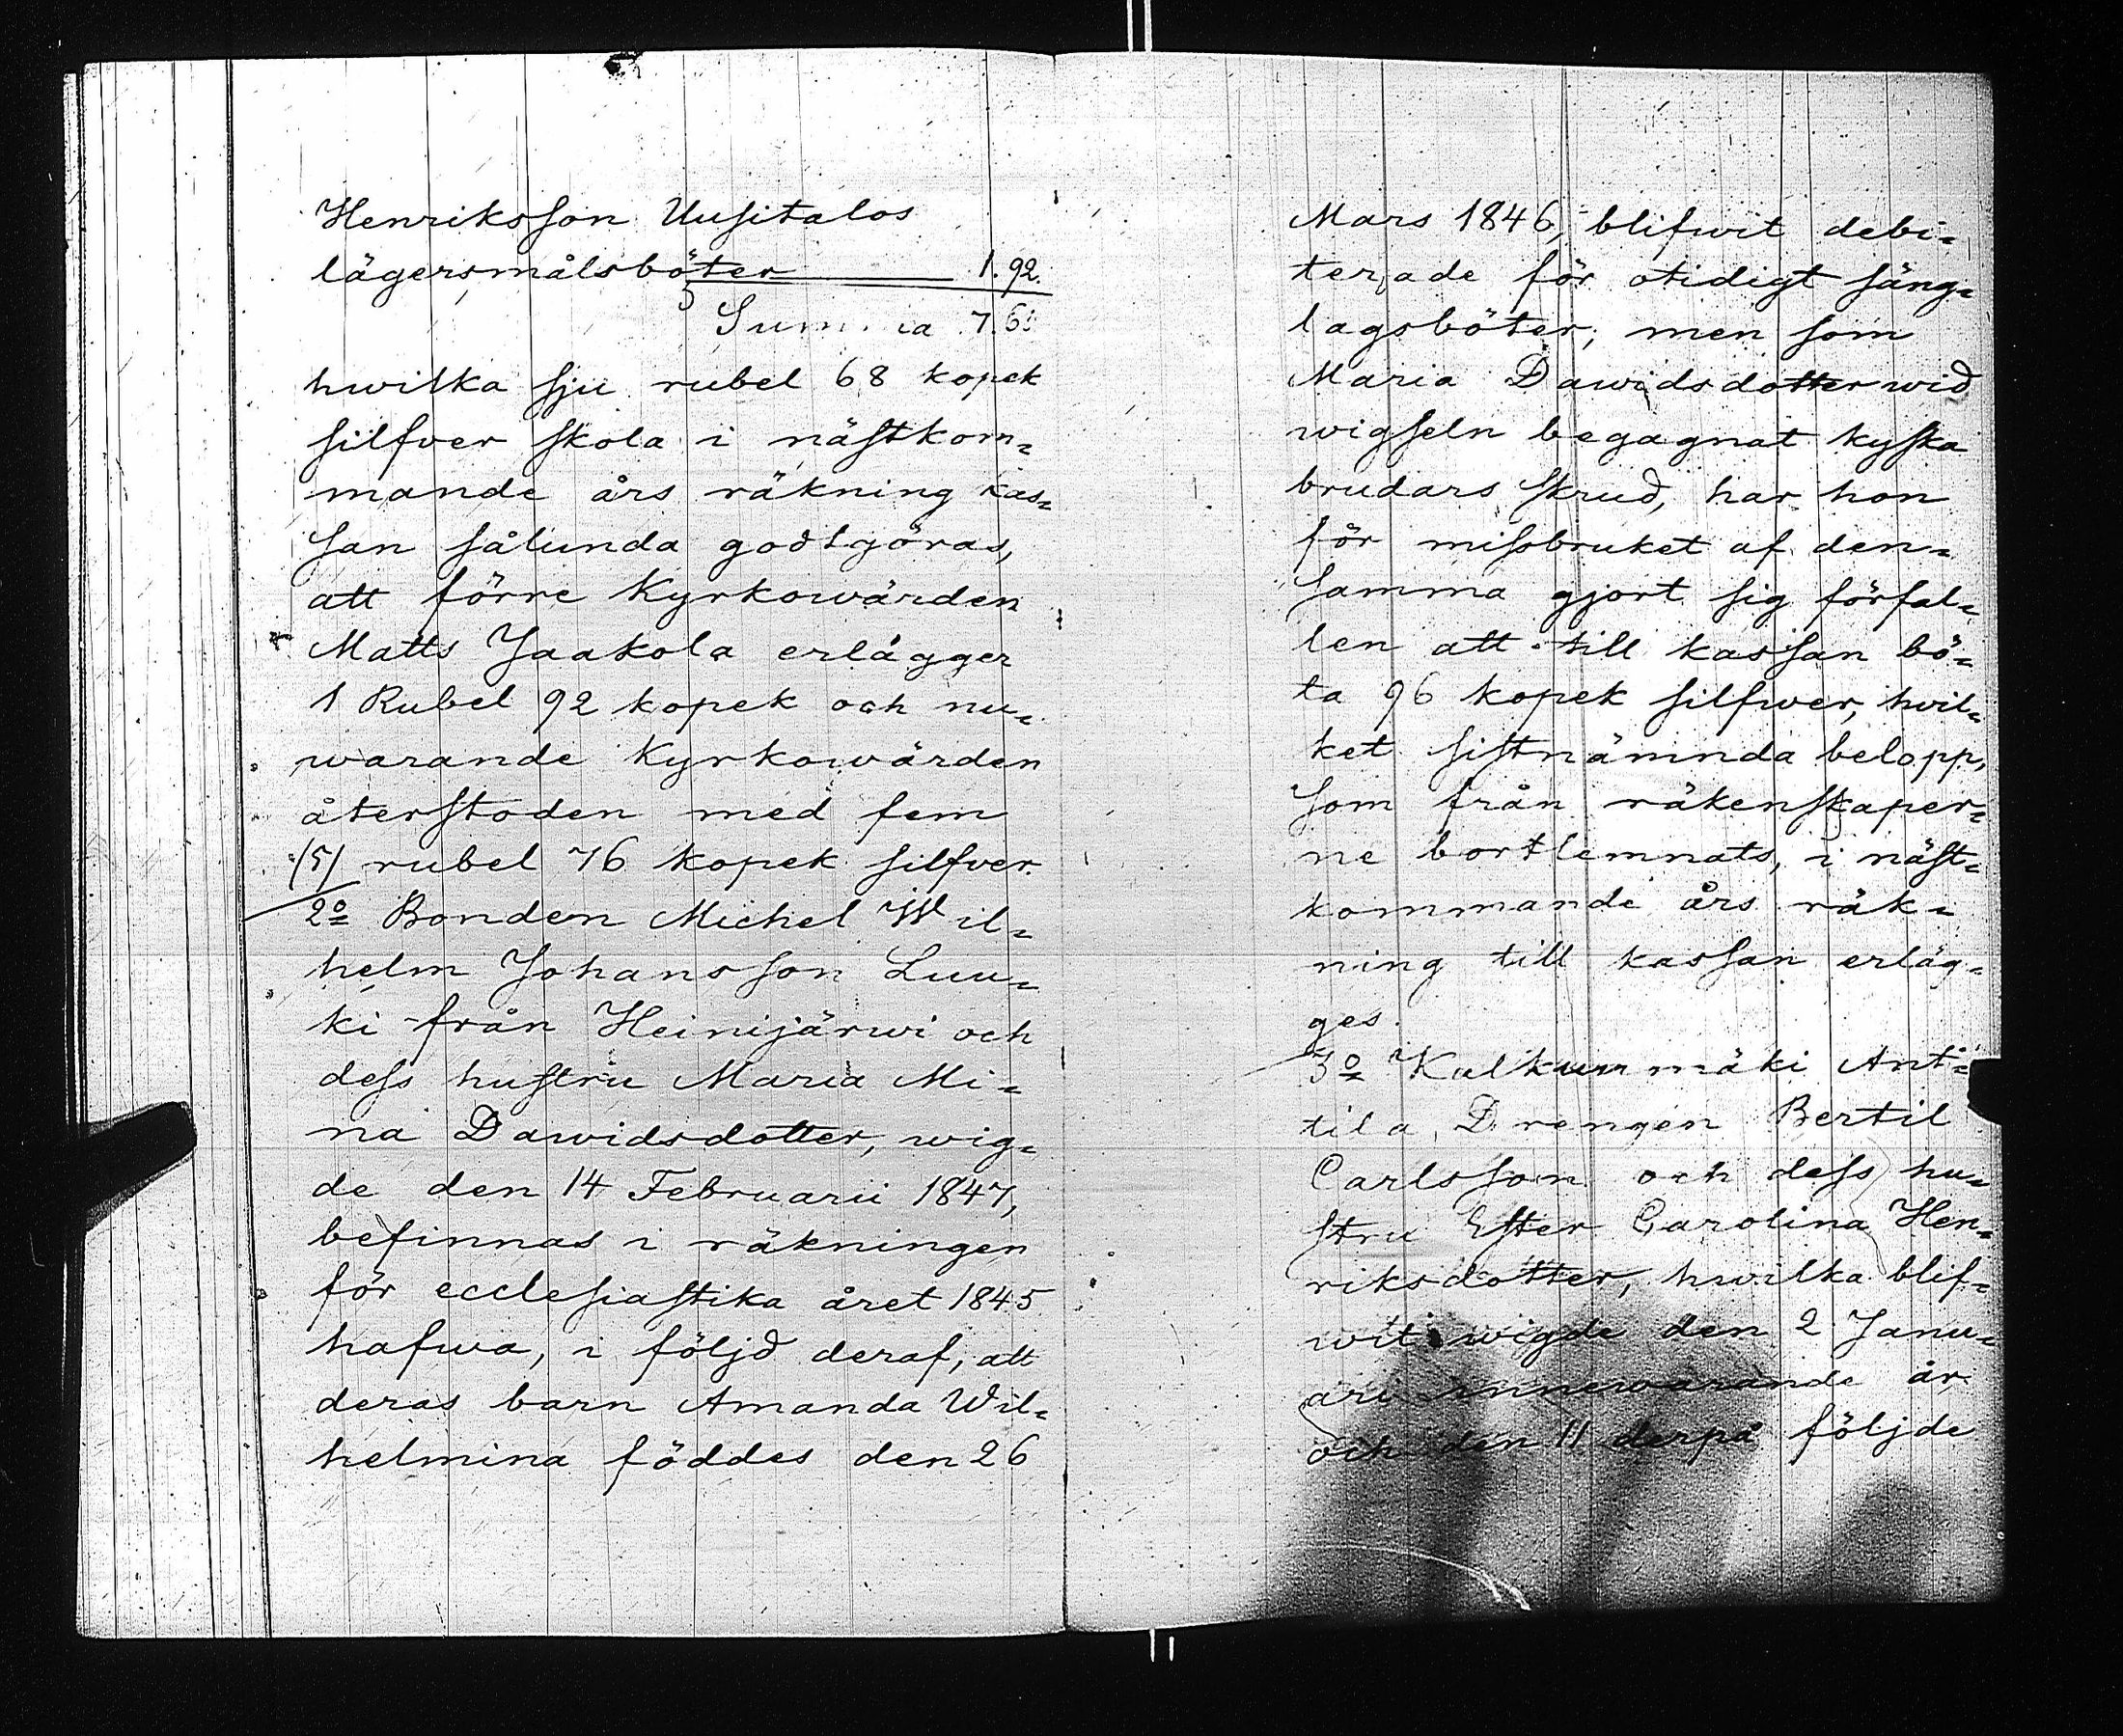 Henriksson Uusitalos
lägersmålsböter 1.92.
Summa 7.68
hwilka sju rubel 68 kopek
silfver skola i nästkom=
mande års räkning kas=
san sålunda godtgöras,
att förre Kyrkowärden
Matts Jaakola erlägger
1 Rubel 92 kopek och nu=
warande Kyrkowärden
återstoden med fem
(5) rubel 76 kopek silfver.
2o Bonden Michel Wil=
helm Johansson Luu=
ki från Heinijärwi och
dess hustru Maria Mi=
na Dawidsdotter, wig=
de den 14 Februarii 1847,
befinnas i räkningen
för ecclesiastika året 1845
hafwa, i följd deraf, att
deras barn Amanda Wil=
helmina föddes den 26
Mars 1846, blifwit debi=
terade för otidigt säng=
lagsböter; men som
Maria Dawidsdotter wid
wigseln begagnat kyska
brudars skrud, har hon
för missbruket af den=
samma gjort sig förfal=
len att till kassan bö=
ta 96 kopek silfwer, hwil=
ket sistnämnda belopp,
som från räkenskaper=
ne bortlemnats, i näst=
kommande års räk=
ning till kassan erläg=
ges.
3o Kalkunmäki Ant=
tila, Drengen Bertil
Carlsson och dess hu=
stru Ester Carolina Hen=
riksdotter, hwilka blif=
wit wigde den 2 Janu=
ari innewarande år
och den 11 derpå följde